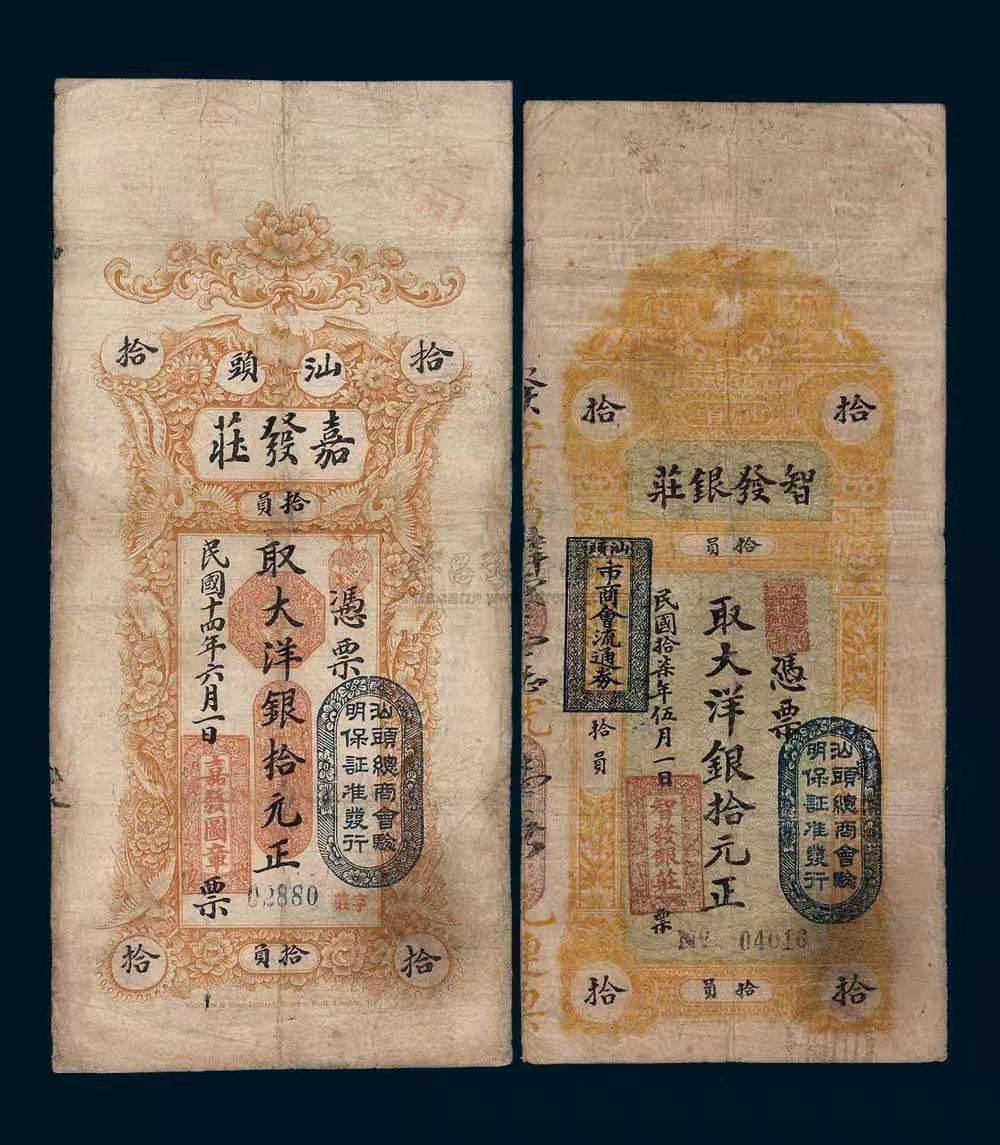 拾 拾
汕頭
嘉發莊
拾員
憑票
取大洋銀拾元正
民國十四年六月一日
嘉發圖章
票
汕頭總商會驗
明保証准發行
02880
字莊
拾 拾員 拾
Waterlow & Sons Limited, London Wall, London,
拾 拾
智發銀莊
拾員
憑票
取大洋銀拾元正
民國拾柒年伍月一日
智發銀莊
票
汕頭
市商會流通券
拾員
汕頭總商會驗
明保証准發行
No 04616
拾 拾員 拾